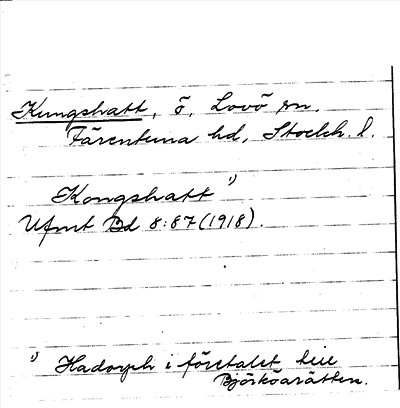 Kungshatt, ö, Lovö sn.
Färentuna hd, Stockh. l.
Kongshatt ¹)
Ufmt Bd 8:87 (1918).
¹) Hadorph i företalet till
Björköarätten.